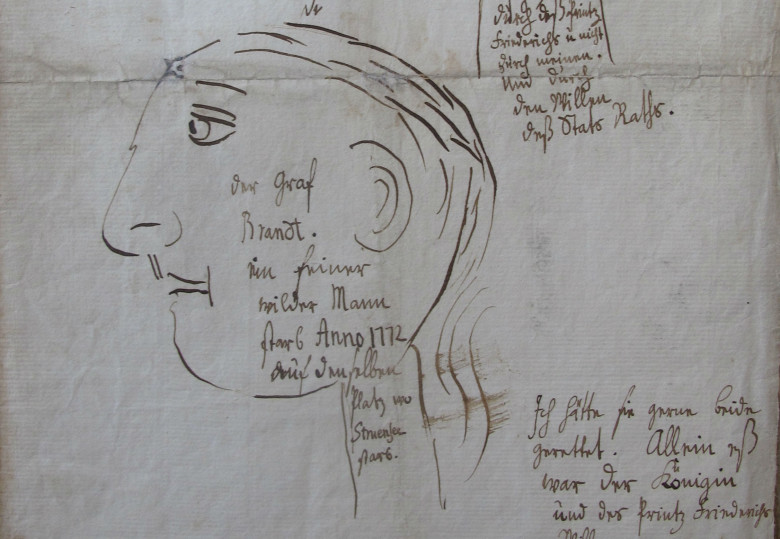 durch deß Printz
Friederichs u nicht
durch meinen.
Und durch
den Willen
deß Stats Raths.
der Graf
Brandt.
ein feiner
wilder Mann
starb Anno 1772
auf denselben
Platz wo
Struensee
starb.
Ich hätte sie gerne beide
gerettet. Allein eß
war der Königin
und des Printz Friederichs